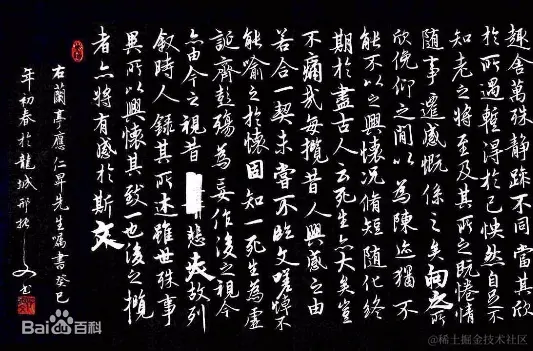 趣舍萬殊静躁不同當其欣
於所遇輕得於己怏然自足不
知老之將至及其所之既惓情
隨事遷感慨係之矣向之所
欣俛仰之間以為陳迹猶不
能不以之興懷况脩短隨化終
期於盡古人云死生亦大矣豈
不痛哉每攬昔人興感之由
若合一契未嘗不臨文嗟悼不
能喻之於懷固知一死生為虛
誕齊彭殤為妄作後之視今
亦由今之視昔悲夫故列
叙時人錄其所述雖世殊事
異所以興懷其致一也後之攬
者亦將有感於斯文
右蘭亭應仁昇先生囑書癸巳
年初春於龍城邢書
Bai度百科
@稀土掘金技术社区